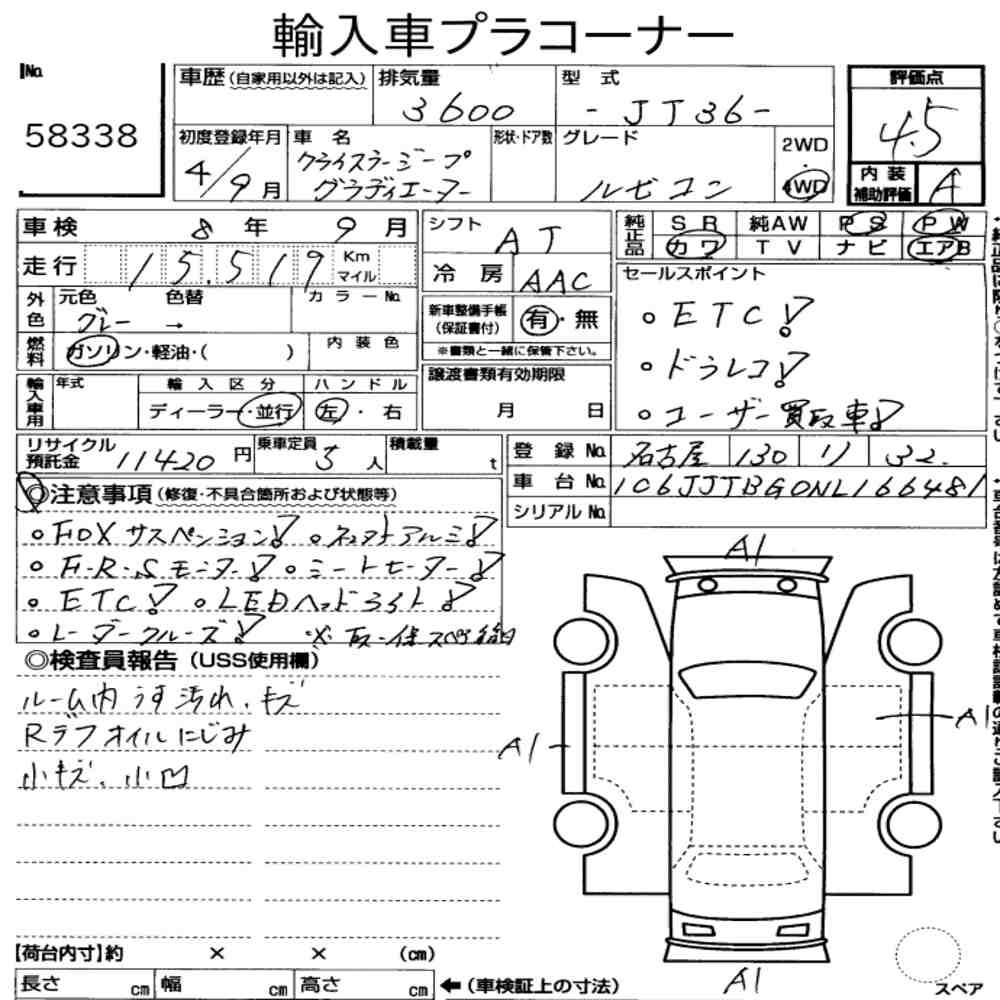 輸入車プラコーナー
No.
58338
車歴 (自家用以外は記入)
排気量
3600
型式
-JT36-
評価点
4.5
初度登録年月
4/9月
車名
クライスラージープ
グラディエーター
形状・ドア数
グレード
ルビコン
2WD
4WD
内装
補助評価
A
車検 8年 9月
走行 15,519 Km
マイル
外色
元色 色替
グレー →
カラーNo.
燃料
ガソリン・軽油・( )
内装色
輸入車用
年式
輸入区分
ディーラー・並行
ハンドル
左・右
シフト
AT
冷房
AAC
新車整備手帳
(保証書付)
有・無
※書類と一緒に保管下さい。
譲渡書類有効期限
月 日
純正品
SR 純AW PS PW
カワ TV ナビ エアB
セールスポイント
○ETC!
○ドラレコ!
○ユーザー買取車!
リサイクル
預託金 11420円
乗車定員 5人
積載量 t
登録No. 名古屋 130 リ 32
車台No. 1C6JJTBG0NL166481
シリアルNo.
◎注意事項 (修復・不具合箇所および状態等)
○FOXサスペンション! ○ネオトアルミ!
○F・R・Sモニター! ○シートヒーター!
○ETC! ○LEDヘッドライト!
○レーダークルーズ! ※取・保スペ後日
◎検査員報告 (USS使用欄)
ルーム内うす汚れ、キズ
Rデフオイルにじみ
小キズ、小凹
A1
A1
A1
A1
【荷台内寸】約 × × (cm)
長さ cm 幅 cm 高さ cm
←(車検証上の寸法)
スペア